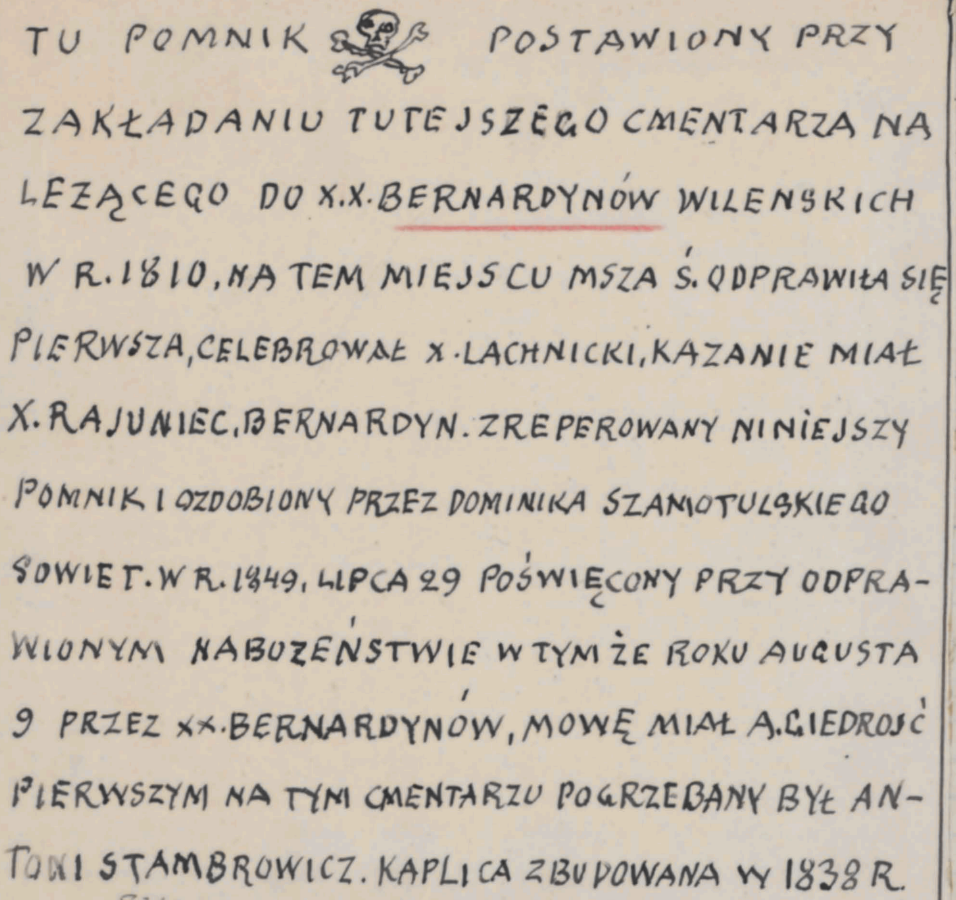 TU POMNIK POSTAWIONY PRZY
ZAKŁADANIU TUTEJSZEGO CMENTARZA NA
LEZĄCEGO DO X.X. BERNARDYNÓW WILENSKICH
W R. 1810, NA TEM MIEJSCU MSZA Ś. ODPRAWIŁA SIĘ
PIERWSZA, CELEBROWAŁ X. LACHNICKI, KAZANIE MIAŁ
X. RAJUNIEC, BERNARDYN. ZREPEROWANY NINIEJSZY
POMNIK I OZDOBIONY PRZEZ DOMINIKA SZAMOTULSKIEGO
SOWIET. W R. 1849, LIPCA 29 POŚWIĘCONY PRZY ODPRA-
WIONYM NABOZEŃSTWIE W TYM ŻE ROKU AUGUSTA
9 PRZEZ XX. BERNARDYNÓW, MOWĘ MIAŁ A. GIEDROJĆ
PIERWSZYM NA TYM CMENTARZU POGRZEBANY BYŁ AN-
TONI STAMBROWICZ. KAPLICA ZBUDOWANA W 1838 R.